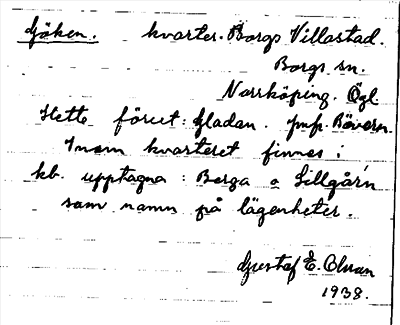 Göken. kvarter. Borgs Villastad.
Borgs sn.
Norrköping. Ögl
Hette förut: Gladan. jmf. Räven.
Inom kvarteret finnes i
kb. upptagna: Berga o Lillgår'n
som namn på lägenheter.
Gustaf E. Olman
1938.